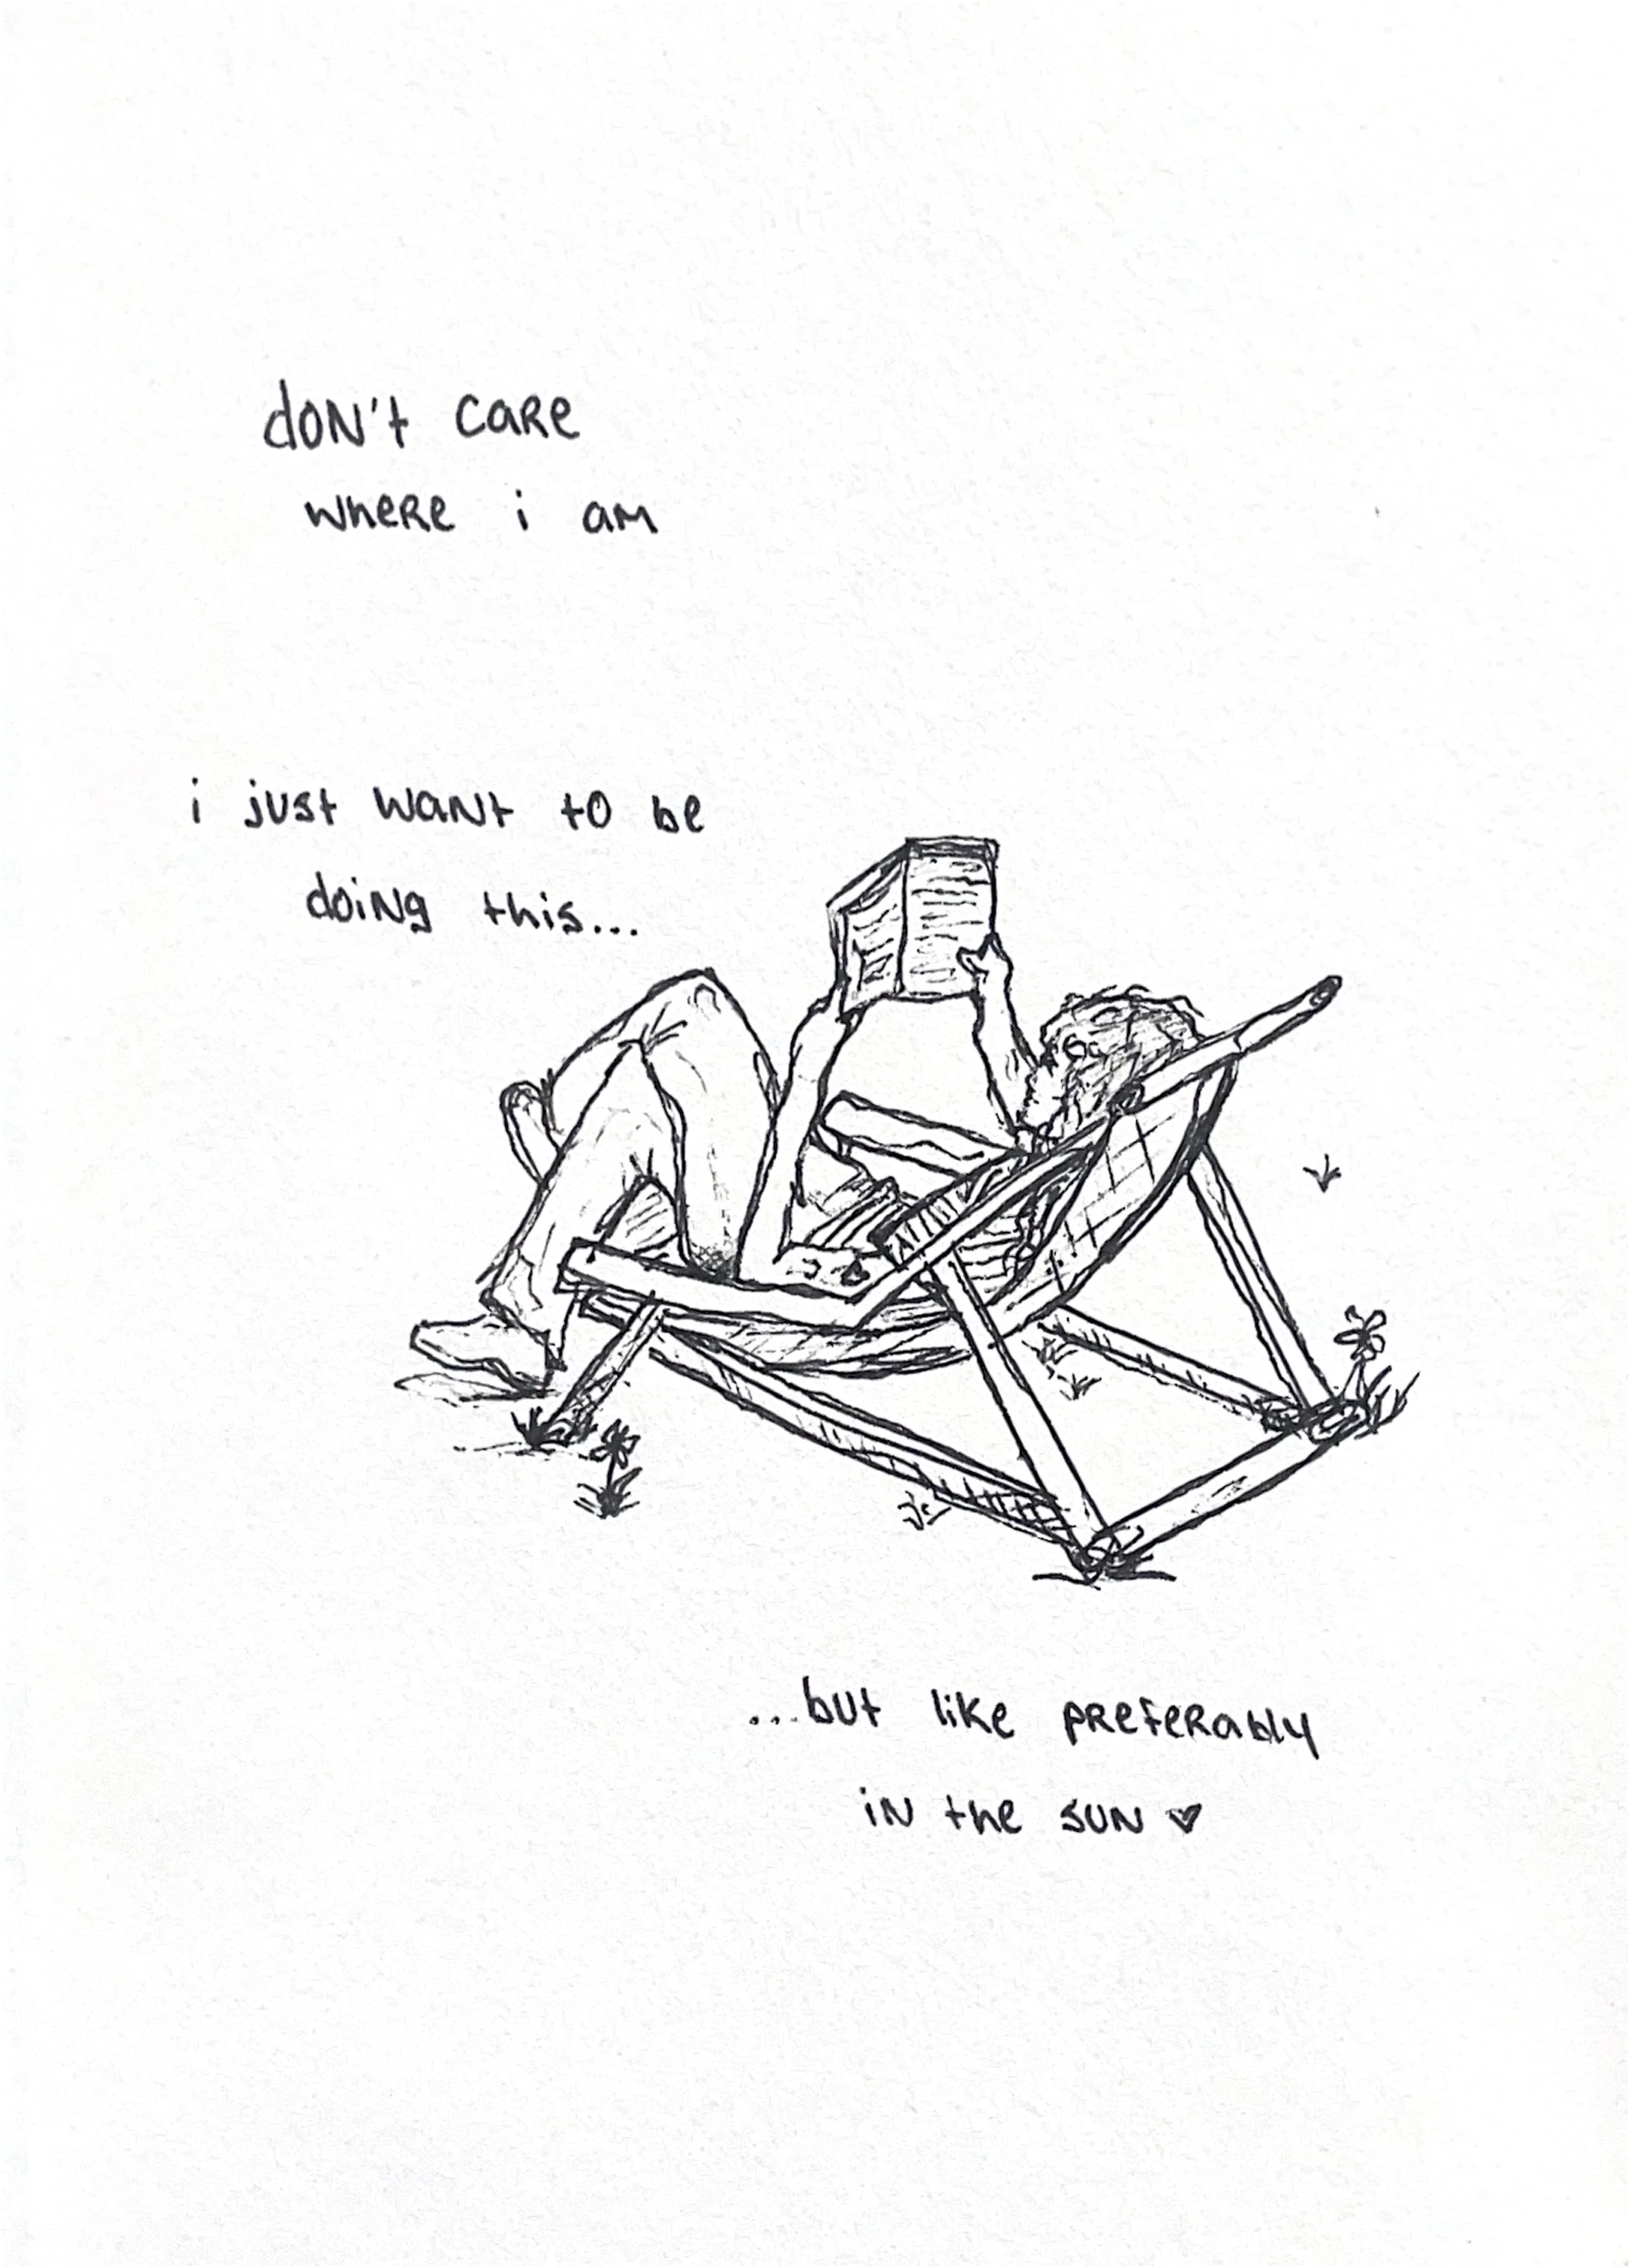 don't care
where i am
i just want to be
doing this...
...but like preferably
in the sun ♥